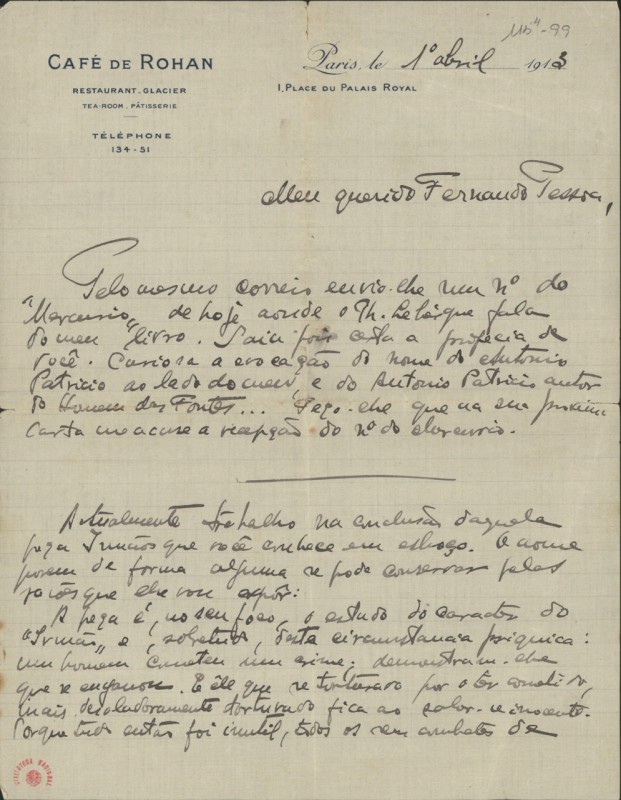 115⁴-99
CAFÉ DE ROHAN
RESTAURANT. GLACIER
TEA-ROOM. PÂTISSERIE
TÉLÉPHONE
134-51
Paris, le 1º abril 1913
1, PLACE DU PALAIS ROYAL
Meu querido Fernando Pessoa,
Pelo mesmo correio envio-lhe um nº do
"Mercurio" de hoje aonde o Ph. Lebesgue fala
do meu livro. Saiu pois certa a profecia de
você. Curiosa a evocação do nome do Antonio
Patricio ao lado do meu e do Antonio Patricio autor
do Homem das Fontes... Peço-lhe que na sua proxima
carta me acuse a recepção do nº do Mercurio.
Actualmente trabalho na conclusão daquela
peça Irmãos que você conhece em esboço. O nome
porem de forma alguma se pode conservar pelas
razões que lhe vou expôr:
A peça é, no seu foco, o estudo do caracter do
"Irmão" e, sobretudo, desta circunstancia psiquica:
um homem cometeu um crime; demonstram-lhe
que se enganou. E êle que se torturava por o ter cometido,
mais desoladoramente torturado fica ao saber-se inocente.
Porque tudo então foi inutil, todos os seus combates de
BIBLIOTECA NACIONAL